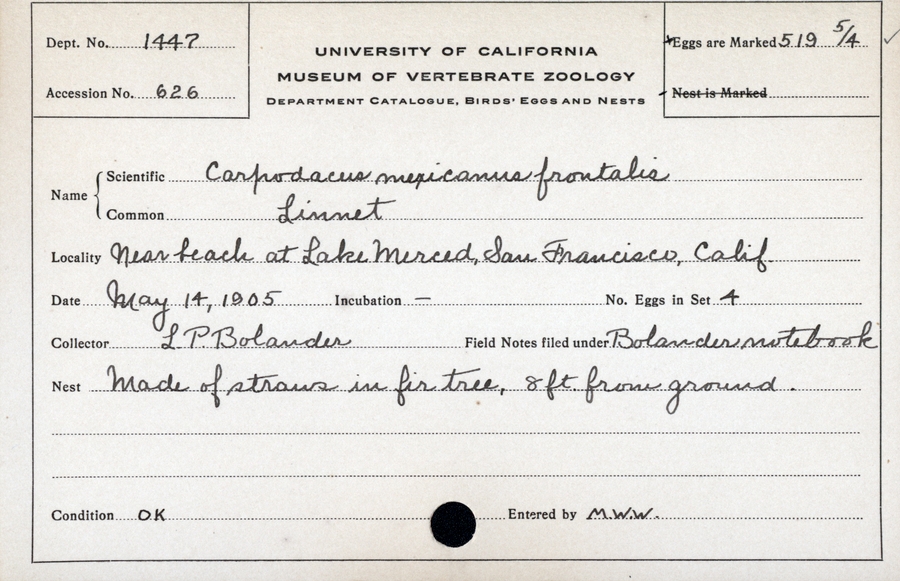 Dept. No. 1447
Accession No. 626
UNIVERSITY OF CALIFORNIA
MUSEUM OF VERTEBRATE ZOOLOGY
DEPARTMENT CATALOGUE, BIRDS' EGGS AND NESTS
Eggs are Marked 519 5/4
Nest is Marked
Name
Scientific Carpodacus mexicanus frontalis
Common Linnet
Locality Near beach at Lake Merced, San Francisco, Calif.
Date May 14, 1905 Incubation — No. Eggs in Set 4
Collector L P. Bolander Field Notes filed under Bolander notebook
Nest Made of straws in fir tree, 8 ft. from ground.
Condition OK Entered by M.W.W.